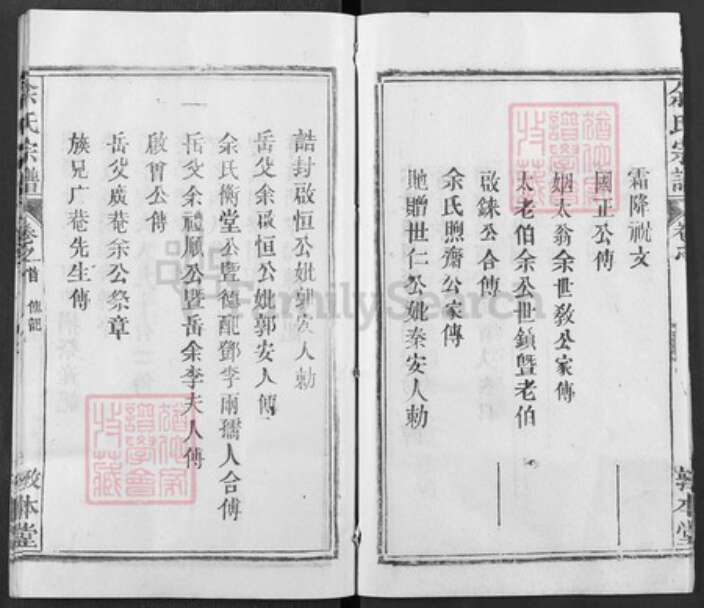 余氏宗譜
霜降祝文
國正公傳
姻太翁余世敎公家傳
太老伯余公世鎮暨老伯
啟銇公合傳
余氏煦齋公家傳
貤贈世仁公妣秦安人勅
敦本堂
誥封啟恒公妣郭安人勅
岳父余啟恒公妣郭安人傳
余氏衡堂公暨德配鄧李兩孺人合傳
岳父余禮順公暨岳余李夫人傳
啟曾公傳
岳父廣菴余公祭章
族兄广菴先生傳
余氏宗譜
卷之首
傳記
敦本堂
FamilySearch